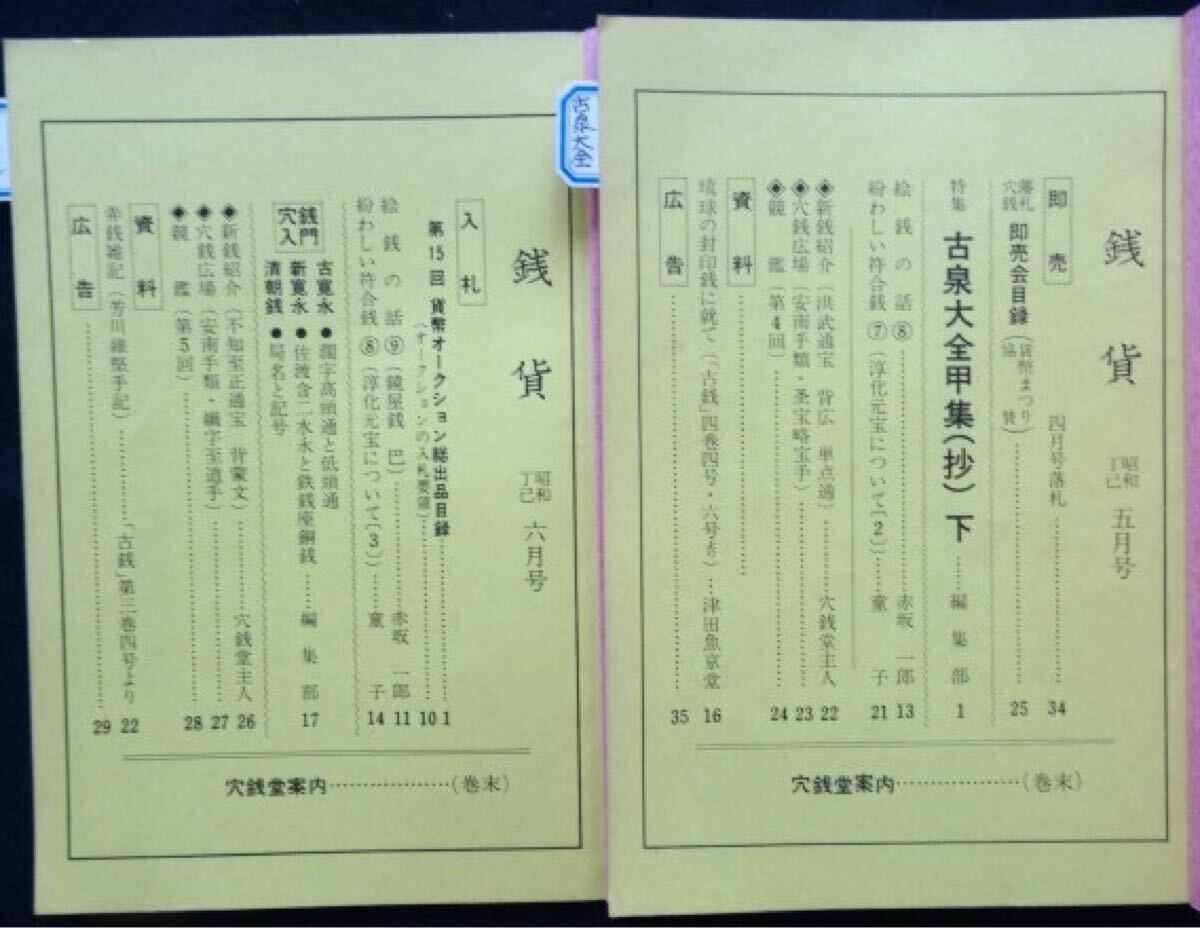 銭貨 昭和丁己 五月号
即売
四月号落札……34
落札穴銭 即売会目録(貨幣まつり協賛)……25
特集 古泉大全甲集(抄)下……編集部 1
絵銭の話⑧……赤坂一郎 13
紛わしい符合銭⑦(淳化元宝について〔2〕)……童子 21
◈新銭紹介(洪武通宝 背広 単点通)……穴銭堂主人 22
◈穴銭広場(安南手類・圣宝略宝手)……23
◈鏡鑑(第4回)……24
資料
琉球の封印銭に就て(「古銭」四巻四号・六号より)……津田魚京堂 16
広告……35
穴銭堂案内……(巻末)
古泉大全
銭貨 昭和丁己 六月号
入札
第15回 貨幣オークション総出品目録……1
(オークションの入札要領)……10
絵銭の話⑨(鏡屋銭 巴)……赤坂一郎 11
紛わしい符合銭⑧(淳化元宝について〔3〕)……童子 14
穴銭入門
古寛永●濶字高頭通と低頭通
新寛永●佐渡含二水永と鉄銭座銅銭……編集部 17
清朝銭●局名と記号
◈新銭紹介(不知至正通宝 背蒙文)……穴銭堂主人 26
◈穴銭広場(安南手類・繊字至道手)……27
◈鏡鑑(第5回)……28
資料
弄銭雑記(芳川維堅手記)……「古銭」第三巻四号より 22
広告……29
穴銭堂案内……(巻末)